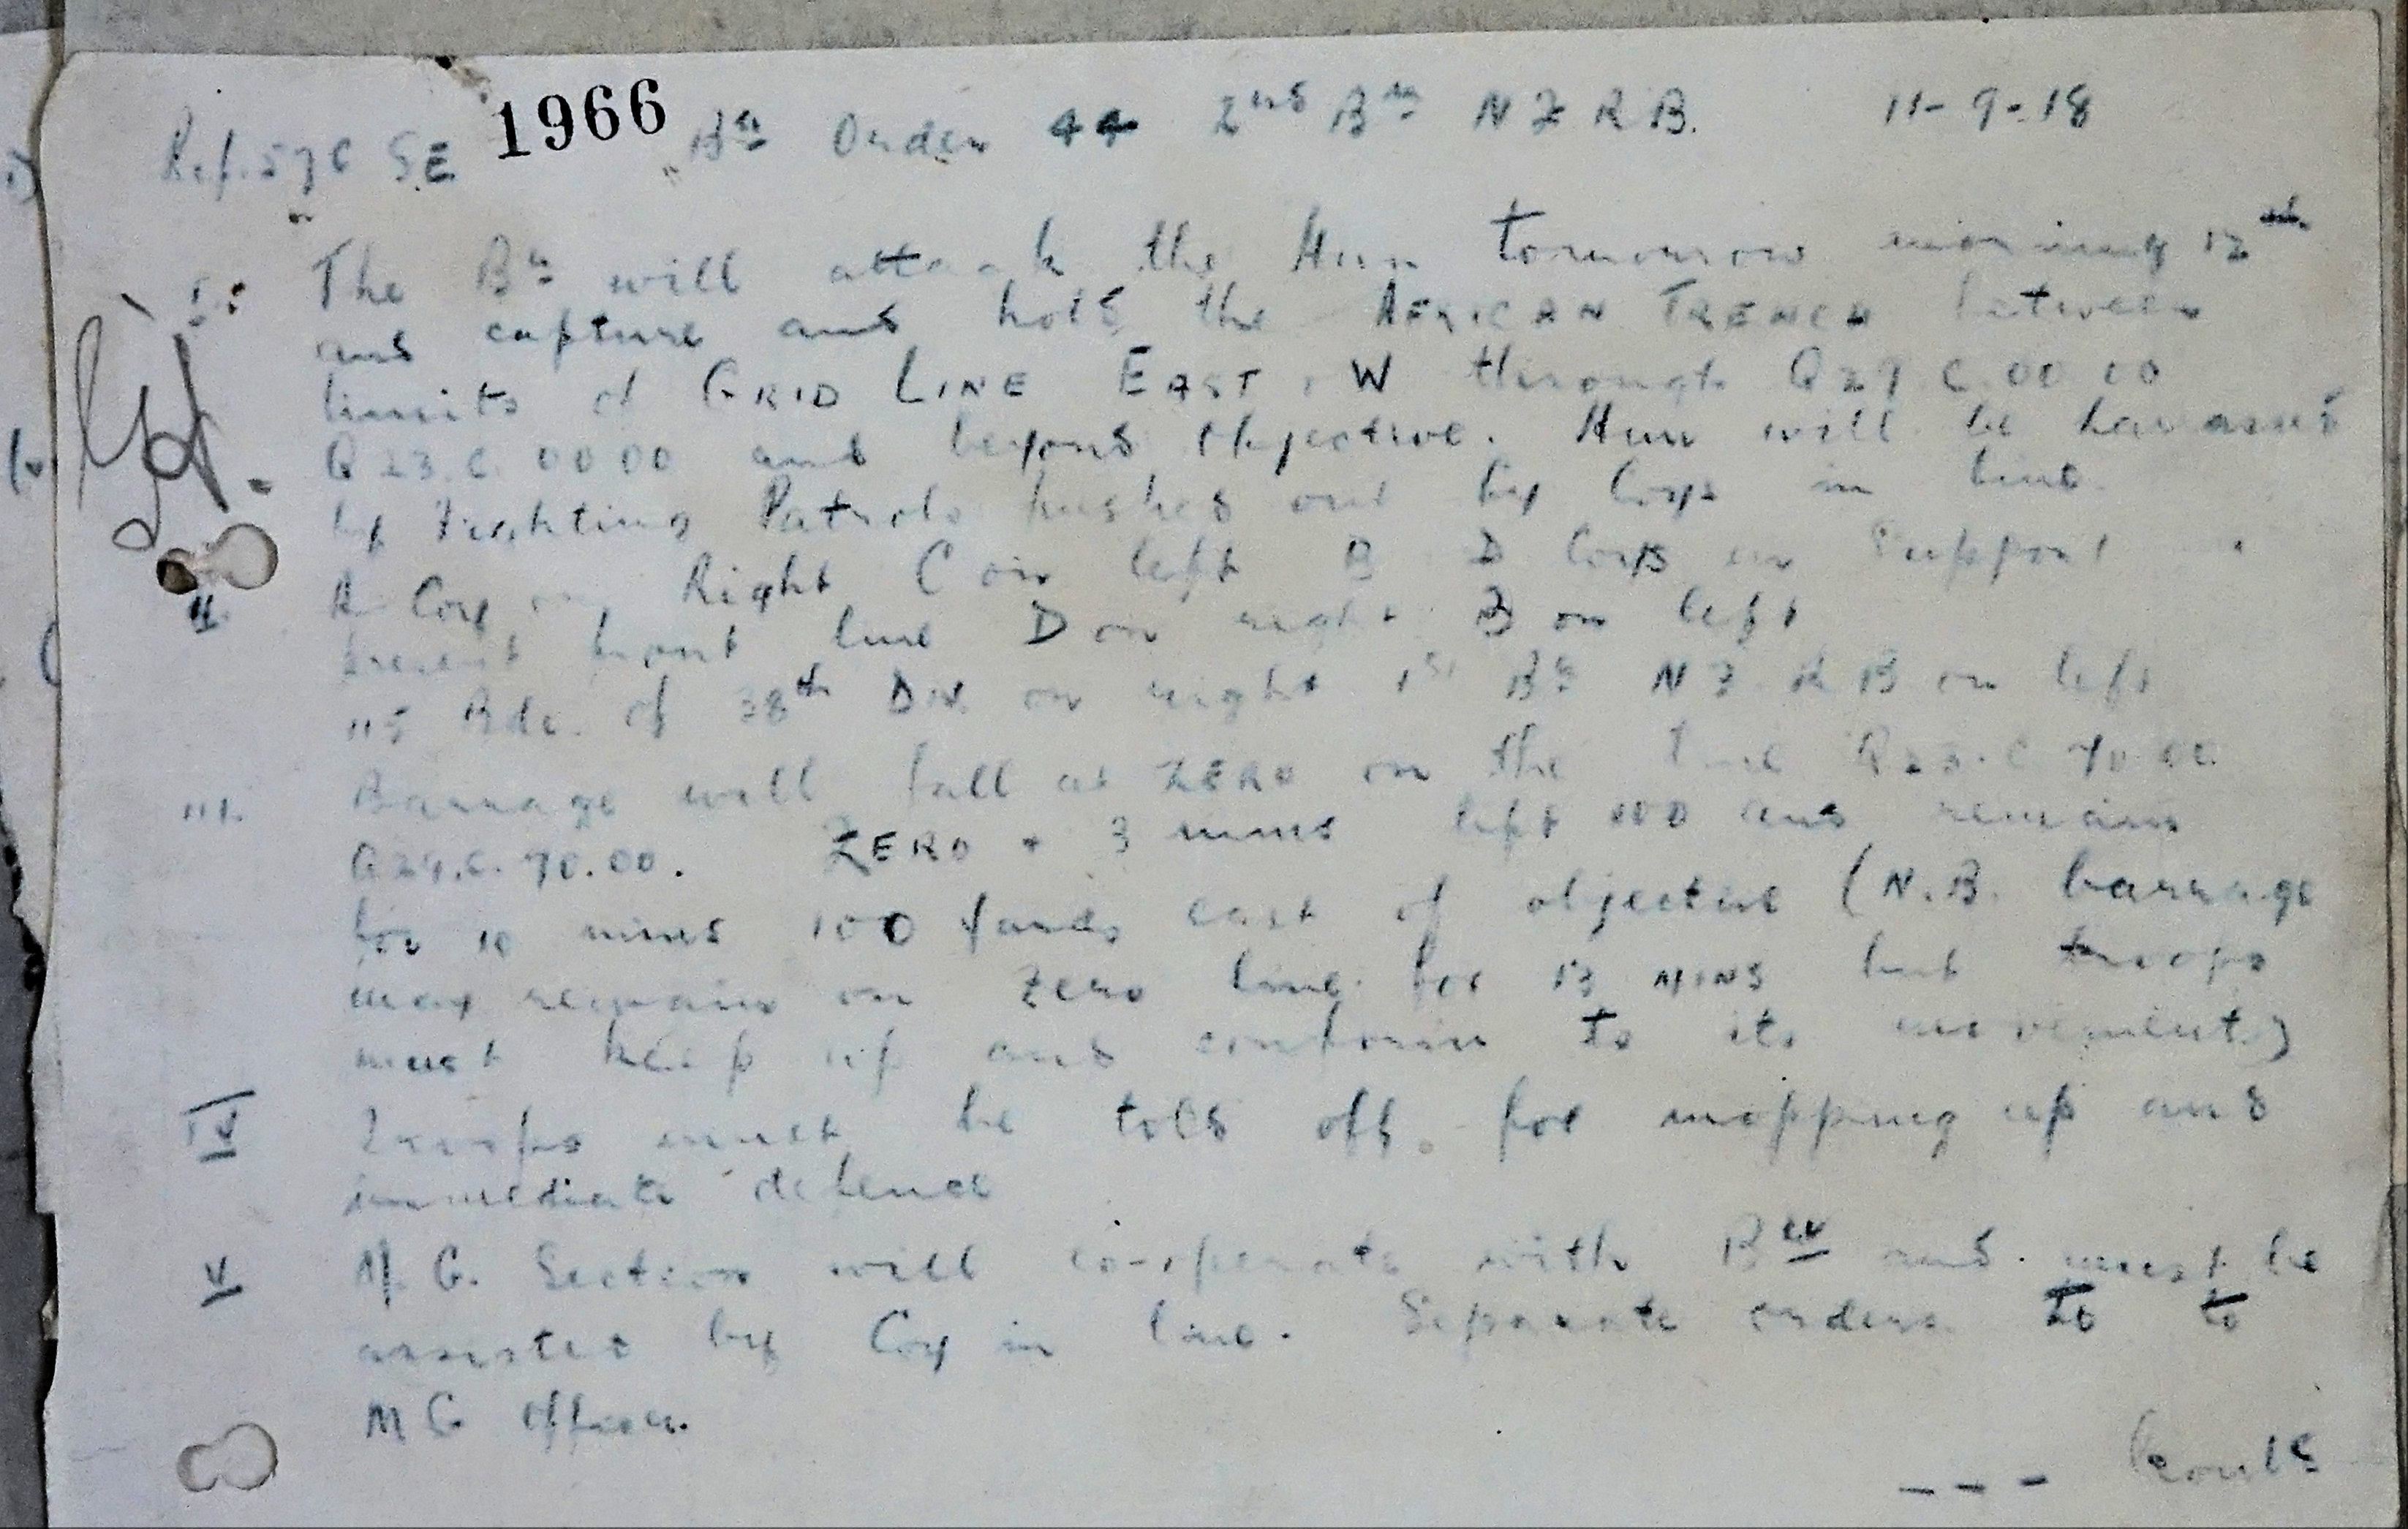 1966
Ref. 57C SE Bn Order 44 2nd Bn N Z R B. 11-9-18
I. The Bn will attack the Hun tomorrow morning 12th
and capture and hold the AFRICAN TRENCH between
limits of GRID LINE EAST, W through Q29 C 00 00
Q23.C 00 00 and beyond objective. Hun will be harassed
by Fighting Patrols pushed out by Coys in line.
II. A Coy on Right C on left B D Coys in Support
present front line D on right B on left
115 Bde. of 38th Div. on right 1st Bn N Z R B on left
III. Barrage will fall at ZERO on the line C 70.00
Q29.C.70.00. ZERO + 3 mins lift 100 and remain
for 10 mins 100 yards east of objective (N.B. barrage
may remain on zero line for 13 MINS but troops
must keep up and conform to its movement)
IV Troops must be told off for mopping up and
immediate defence
V M.G. Section will co-operate with Bn and must be
assisted by Coy in line. Separate orders to to
M G Officer.
--- Contd